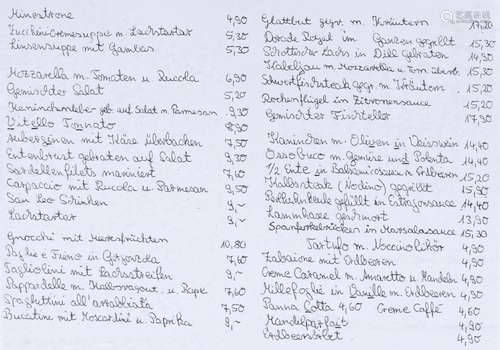 Minestrone 4,90
Zucchinicremesuppe m. Lachstartar 5,30
Linsensuppe mit Gambas 5,30
Mozzarella m. Tomaten u. Rucola 6,90
Gemischter Salat 5,20
Kaninchenleber geb. auf Salat m. Parmesan 9,30
Vitello Tonnato 8,90
Auberginen mit Käse überbacken 7,50
Entenbrust gebraten auf Salat 9,30
Sardellenfilets mariniert 7,60
Carpaccio mit Rucola u. Parmesan 9,50
San Leo Schinken 9,-
Lachstartar 9,-
Gnocchi mit Meeresfrüchten 10,80
Paglia e Fieno in Gorgonzola 7,60
Tagliolini mit Lachsstreifen 9,-
Pappardelle m. Kalbsragout u. Pilze 7,60
Spaghettini all'arrabbiata 7,50
Bucatini mit Moscardini u. Paprika 9,-
Glattbut gegr. m. Kräutern 17,20
Dorade Royal im Ganzen gegrillt 15,30
Schottischer Lachs in Dill gebraten 14,90
Kabeljau m. Mozzarella u. Tom. überb. 15,30
Schwertfischsteak gegr. m. Kräutern 15,20
Rochenflügel in Zitronensauce 15,20
Gemischter Fischteller 17,90
Kaninchen m. Oliven in Weisswein 14,40
Ossobuco m. Gemüse und Polenta 14,40
1/2 Ente in Balsamicosauce m. Erdbeeren 15,20
Kalbssteak (Nodino) gegrillt 15,90
Perlhuhnkeule gefüllt in Estragonsauce 14,40
Lammhaxe geschmort 13,90
Spanferkelrücken in Marsalasauce 15,30
Tartufo m. Noccinolikör 4,90
Zabaione mit Erdbeeren 4,90
Creme Caramel m. Amaretto u. Mandeln 4,90
Millefoglie in Vanille m. Erdbeeren 4,90
Panna Cotta 4,60 Creme Caffé 4,60
Mandelparfait 4,90
Erdbeersorbet 4,90